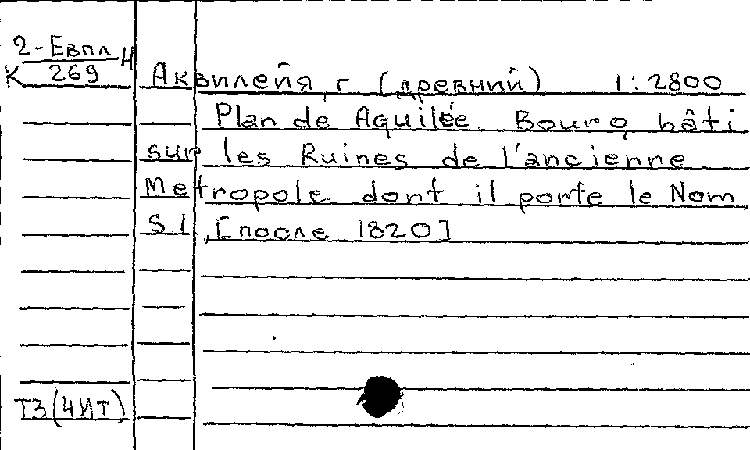 2-Евпл.Н
К 269
Аквилейя, г. (древний) 1:2800
Plan de Aquilée. Bourg bâti
sur les Ruines de l'ancienne
Metropole dont il porte le Nom
S l, [после 1820]
ТЗ(ЧИТ)